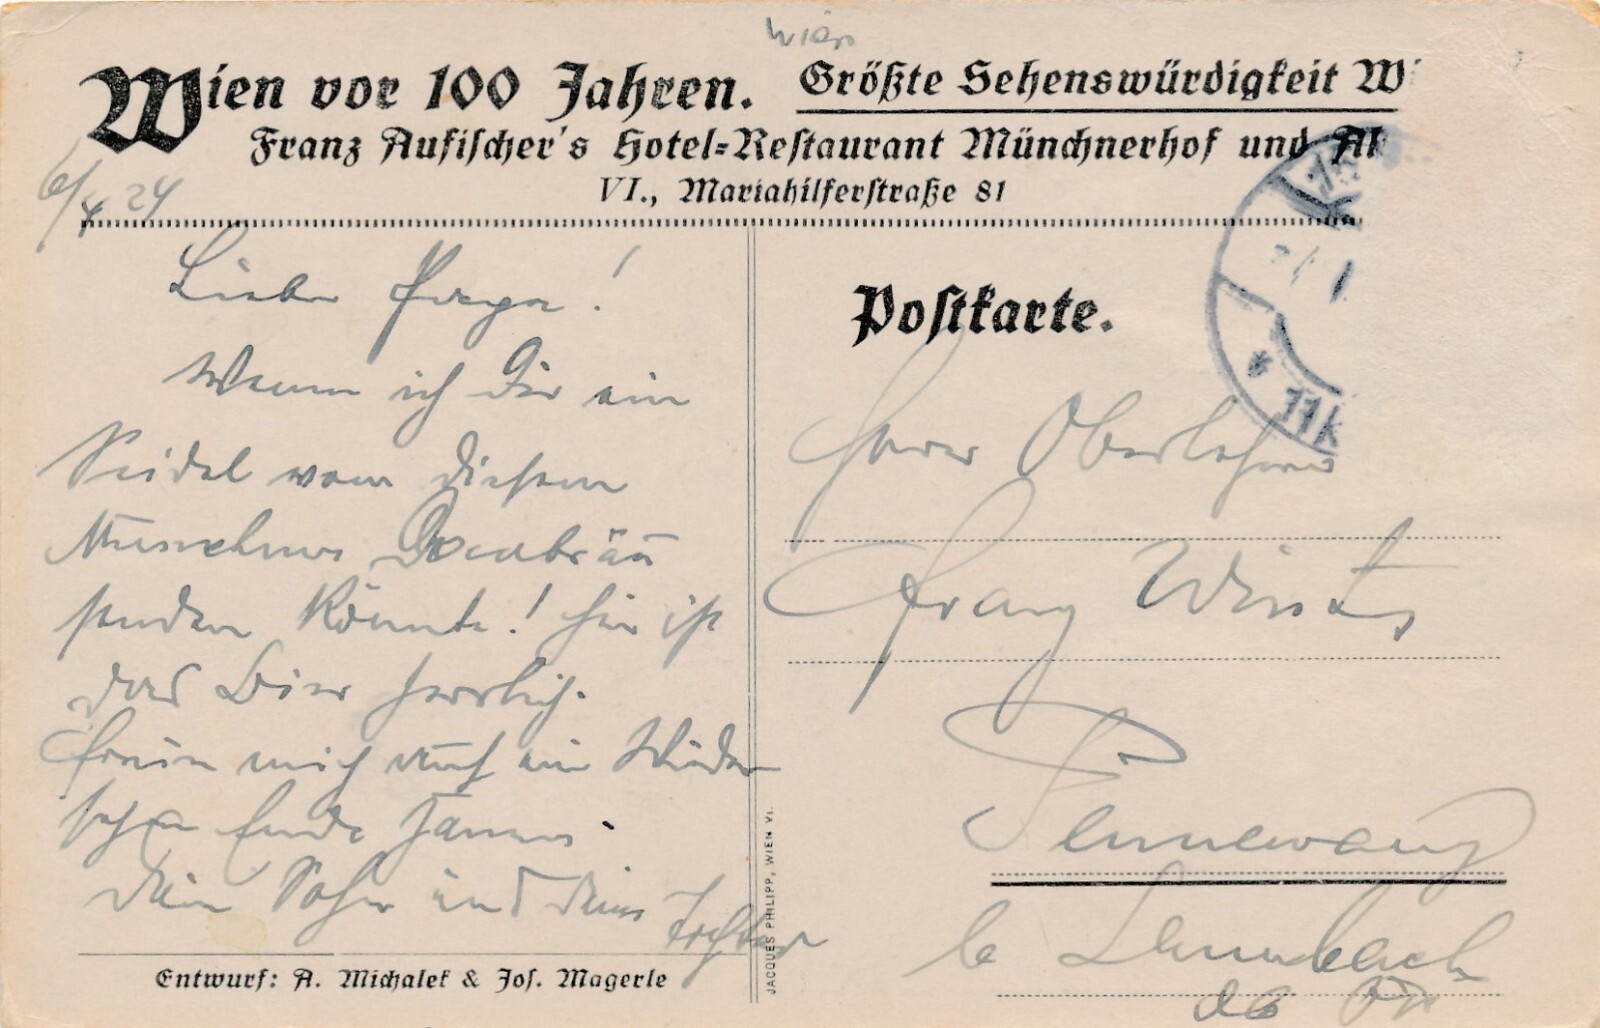 Wien
Wien vor 100 Jahren. Größte Sehenswürdigkeit Wi
Franz Aufischer's Hotel-Restaurant Münchnerhof und
VI., Mariahilferstraße 81
6/4 24
Lieber Papa!
Wenn ich Dir ein
Seidel vom diesem
Münchner
senden könnte! Hier ist
das Bier herrlich.
Freue mich auf ein Wieder
sehen Ende
Dein Sohn und Deine
Tochter
Entwurf: A. Michalek & Jos. Magerle
JACQUES PHILIPP, WIEN VI.
Postkarte.
* 11k
Herrn Oberlehrer
Franz
Pennewang
b Lambach